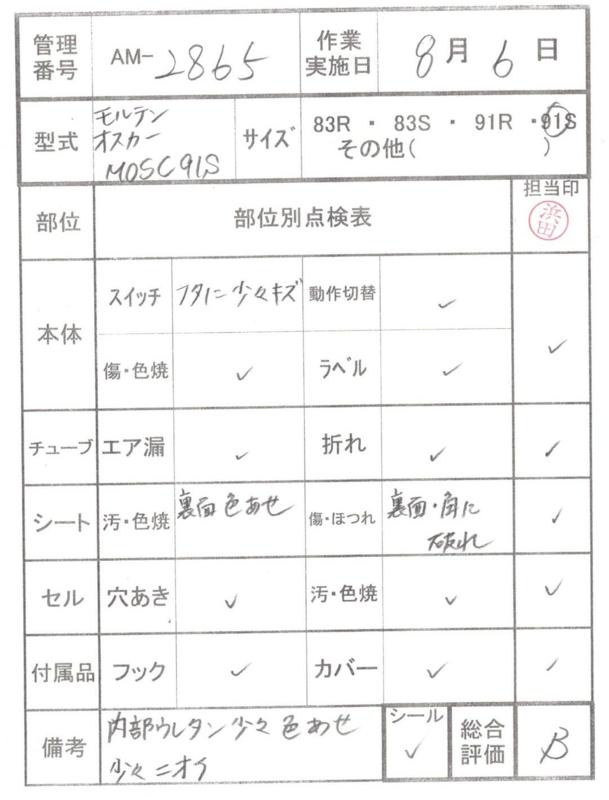 管理番号 AM-2865 作業実施日 8月6日
型式 モルテン オスカー MOSC91S サイズ 83R ・ 83S ・ 91R ・ 91S
その他( )
担当印
部位 部位別点検表 浜田
本体 スイッチ フタに少々キズ 動作切替 ✓
傷・色焼 ✓ ラベル ✓ ✓
チューブ エア漏 ✓ 折れ ✓ ✓
シート 汚・色焼 裏面色あせ 傷・ほつれ 裏面・角に
破れ ✓
セル 穴あき ✓ 汚・色焼 ✓ ✓
付属品 フック ✓ カバー ✓ ✓
備考 内部ウレタン少々色あせ
少々ニオイ
シール ✓ 総合評価 B